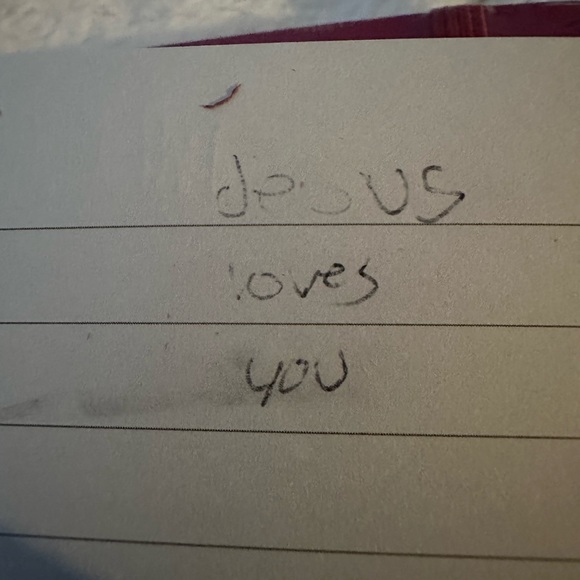 Jesus
loves
you